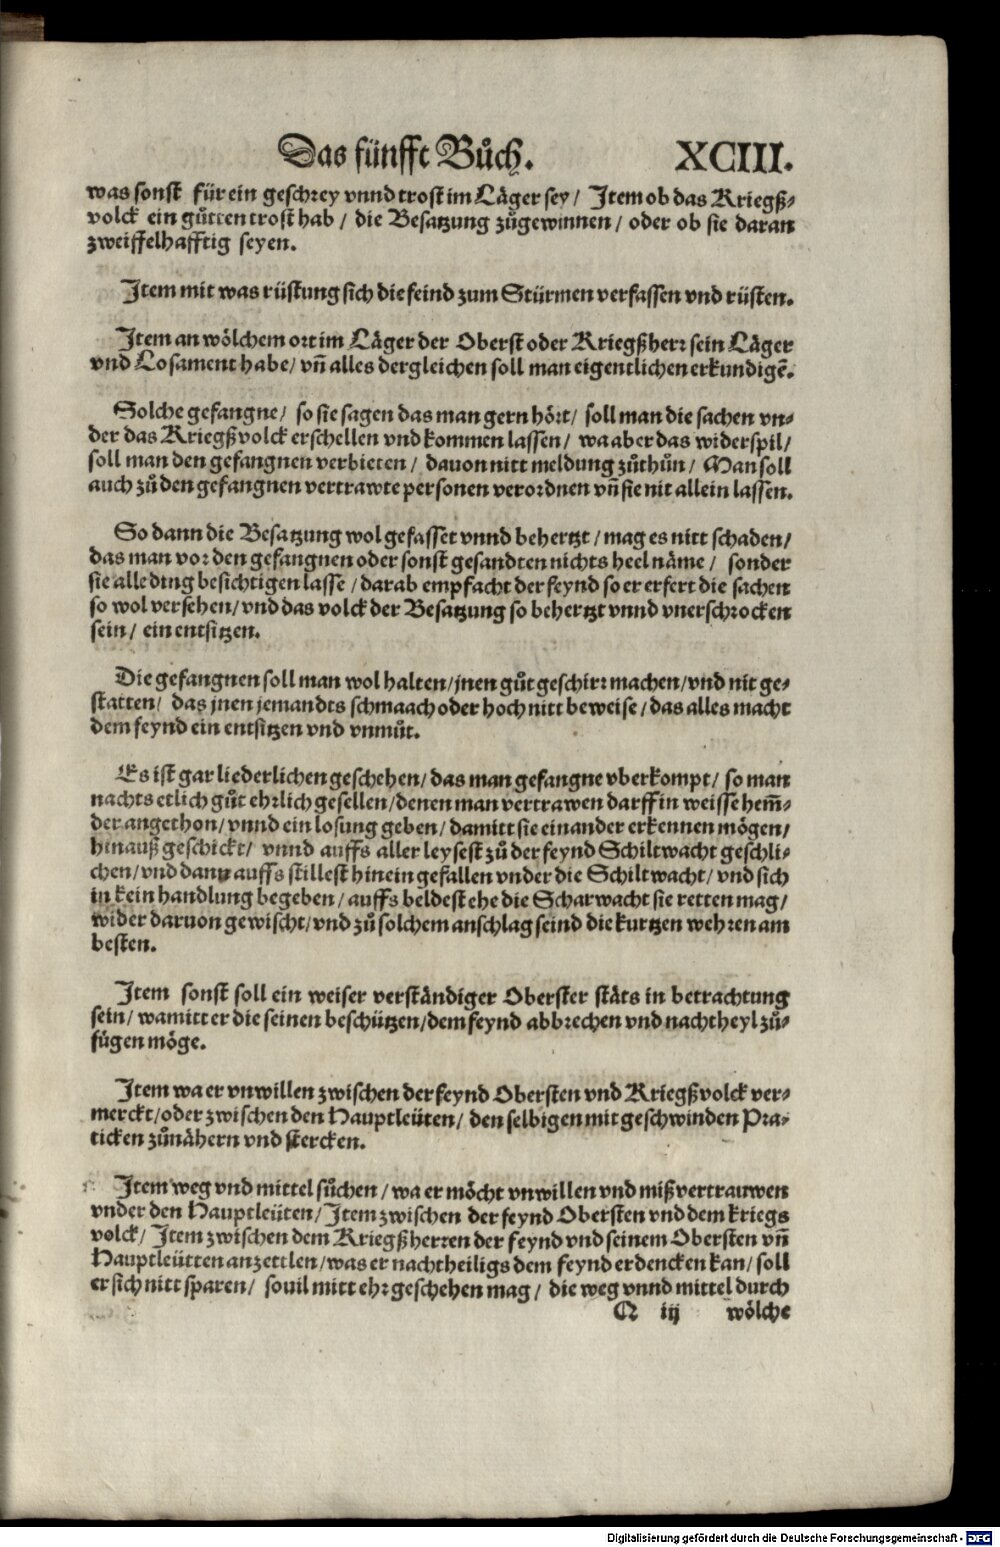 Das fünfft Bůch. XCIII.
was sonst für ein geschrey vnnd trost im Läger sey / Item ob das Kriegß⸗
volck ein gůtten trost hab / die Besatzung zůgewinnen / oder ob sie daran
zweiffelhafftig seyen.
Item mit was rüstung sich die feind zum Stürmen verfassen vnd rüsten.
Item an wölchem ort im Läger der Oberst oder Kriegßherr sein Läger
vnd Losament habe / vñ alles dergleichen soll man eigentlichen erkundigẽ.
Solche gefangne / so sie sagen das man gern hört / soll man die sachen vn⸗
der das Kriegßvolck erschellen vnd kommen lassen / wa aber das widerspil /
soll man den gefangnen verbieten / dauon nitt meldung zůthůn / Man soll
auch zů den gefangnen vertrawte personen verordnen vñ sie nit allein lassen.
So dann die Besatzung wol gefasset vnnd behertzt / mag es nitt schaden /
das man vor den gefangnen oder sonst gesandten nichts heel näme / sonder
sie alle ding besichtigen lasse / darab empfacht der feynd so er erfert die sachen
so wol versehen / vnd das volck der Besatzung so behertzt vnnd vnerschrocken
sein / ein entsitzen.
Die gefangnen soll man wol halten / jnen gůt geschirr machen / vnd nit ge⸗
statten / das jnen jemandts schmaach oder hoch nitt beweise / das alles macht
dem feynd ein entsitzen vnd vnmůt.
Es ist gar liederlichen geschehen / das man gefangne vberkompt / so man
nachts etlich gůt ehrlich gesellen / denen man vertrawen darff in weisse hem̃⸗
der angethon / vnnd ein losung geben / damitt sie einander erkennen mögen /
hinauß geschickt / vnnd auffs aller leysest zů der feynd Schiltwacht geschli⸗
chen / vnd dann auffs stillest hinein gefallen vnder die Schiltwacht / vnd sich
in kein handlung begeben / auffs beldest ehe die Scharwacht sie retten mag /
wider daruon gewischt / vnd zů solchem anschlag seind die kurtzen wehren am
besten.
Item sonst soll ein weiser verständiger Oberster stäts in betrachtung
sein / wamitt er die seinen beschützen / dem feynd abbrechen vnd nachtheyl zů⸗
fügen möge.
Item wa er vnwillen zwischen der feynd Obersten vnd Kriegßvolck ver⸗
merckt / oder zwischen den Hauptleüten / den selbigen mit geschwinden Pra⸗
ticken zůnähern vnd stercken.
Item weg vnd mittel sůchen / wa er möcht vnwillen vnd mißvertrauwen
vnder den Hauptleüten / Item zwischen der feynd Obersten vnd dem kriegs
volck / Item zwischen dem Kriegßherren der feynd vnd seinem Obersten vñ
Hauptleütten anzettlen / was er nachtheiligs dem feynd erdencken kan / soll
er sich nitt sparen / souil mitt ehr geschehen mag / die weg vnnd mittel durch
Q iij wölche
Digitalisierung gefördert durch die Deutsche Forschungsgemeinschaft - DFG